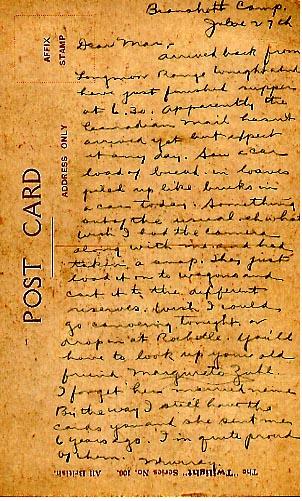 Bramshott Camp.
June 27th
Dear Mar,
arrived back from
Longmoor Range tonight and
have just finished supper
at 6.30. Apparently the
Canadian Mail hasn't
arrived yet but expect
it any day. Saw a car
load of bread in loaves
piled up like bricks in
a car today. Something
out of the usual eh what
wish I had the camera
along with me and had
taken a snap. They just
load it on to wagons and
cart it to the different
reserves. Wish I could
go canoeing tonight or
drop in at Rochelle. You'll
have to look up your old
friend Marguerite
I forget her married name
By the way I still have the
cards you and she sent me
6 years ago. I'm quite proud
of them. Murray.
AFFIX
STAMP
ADDRESS ONLY
POST CARD
The "Twilight" Series No. 100. All British.